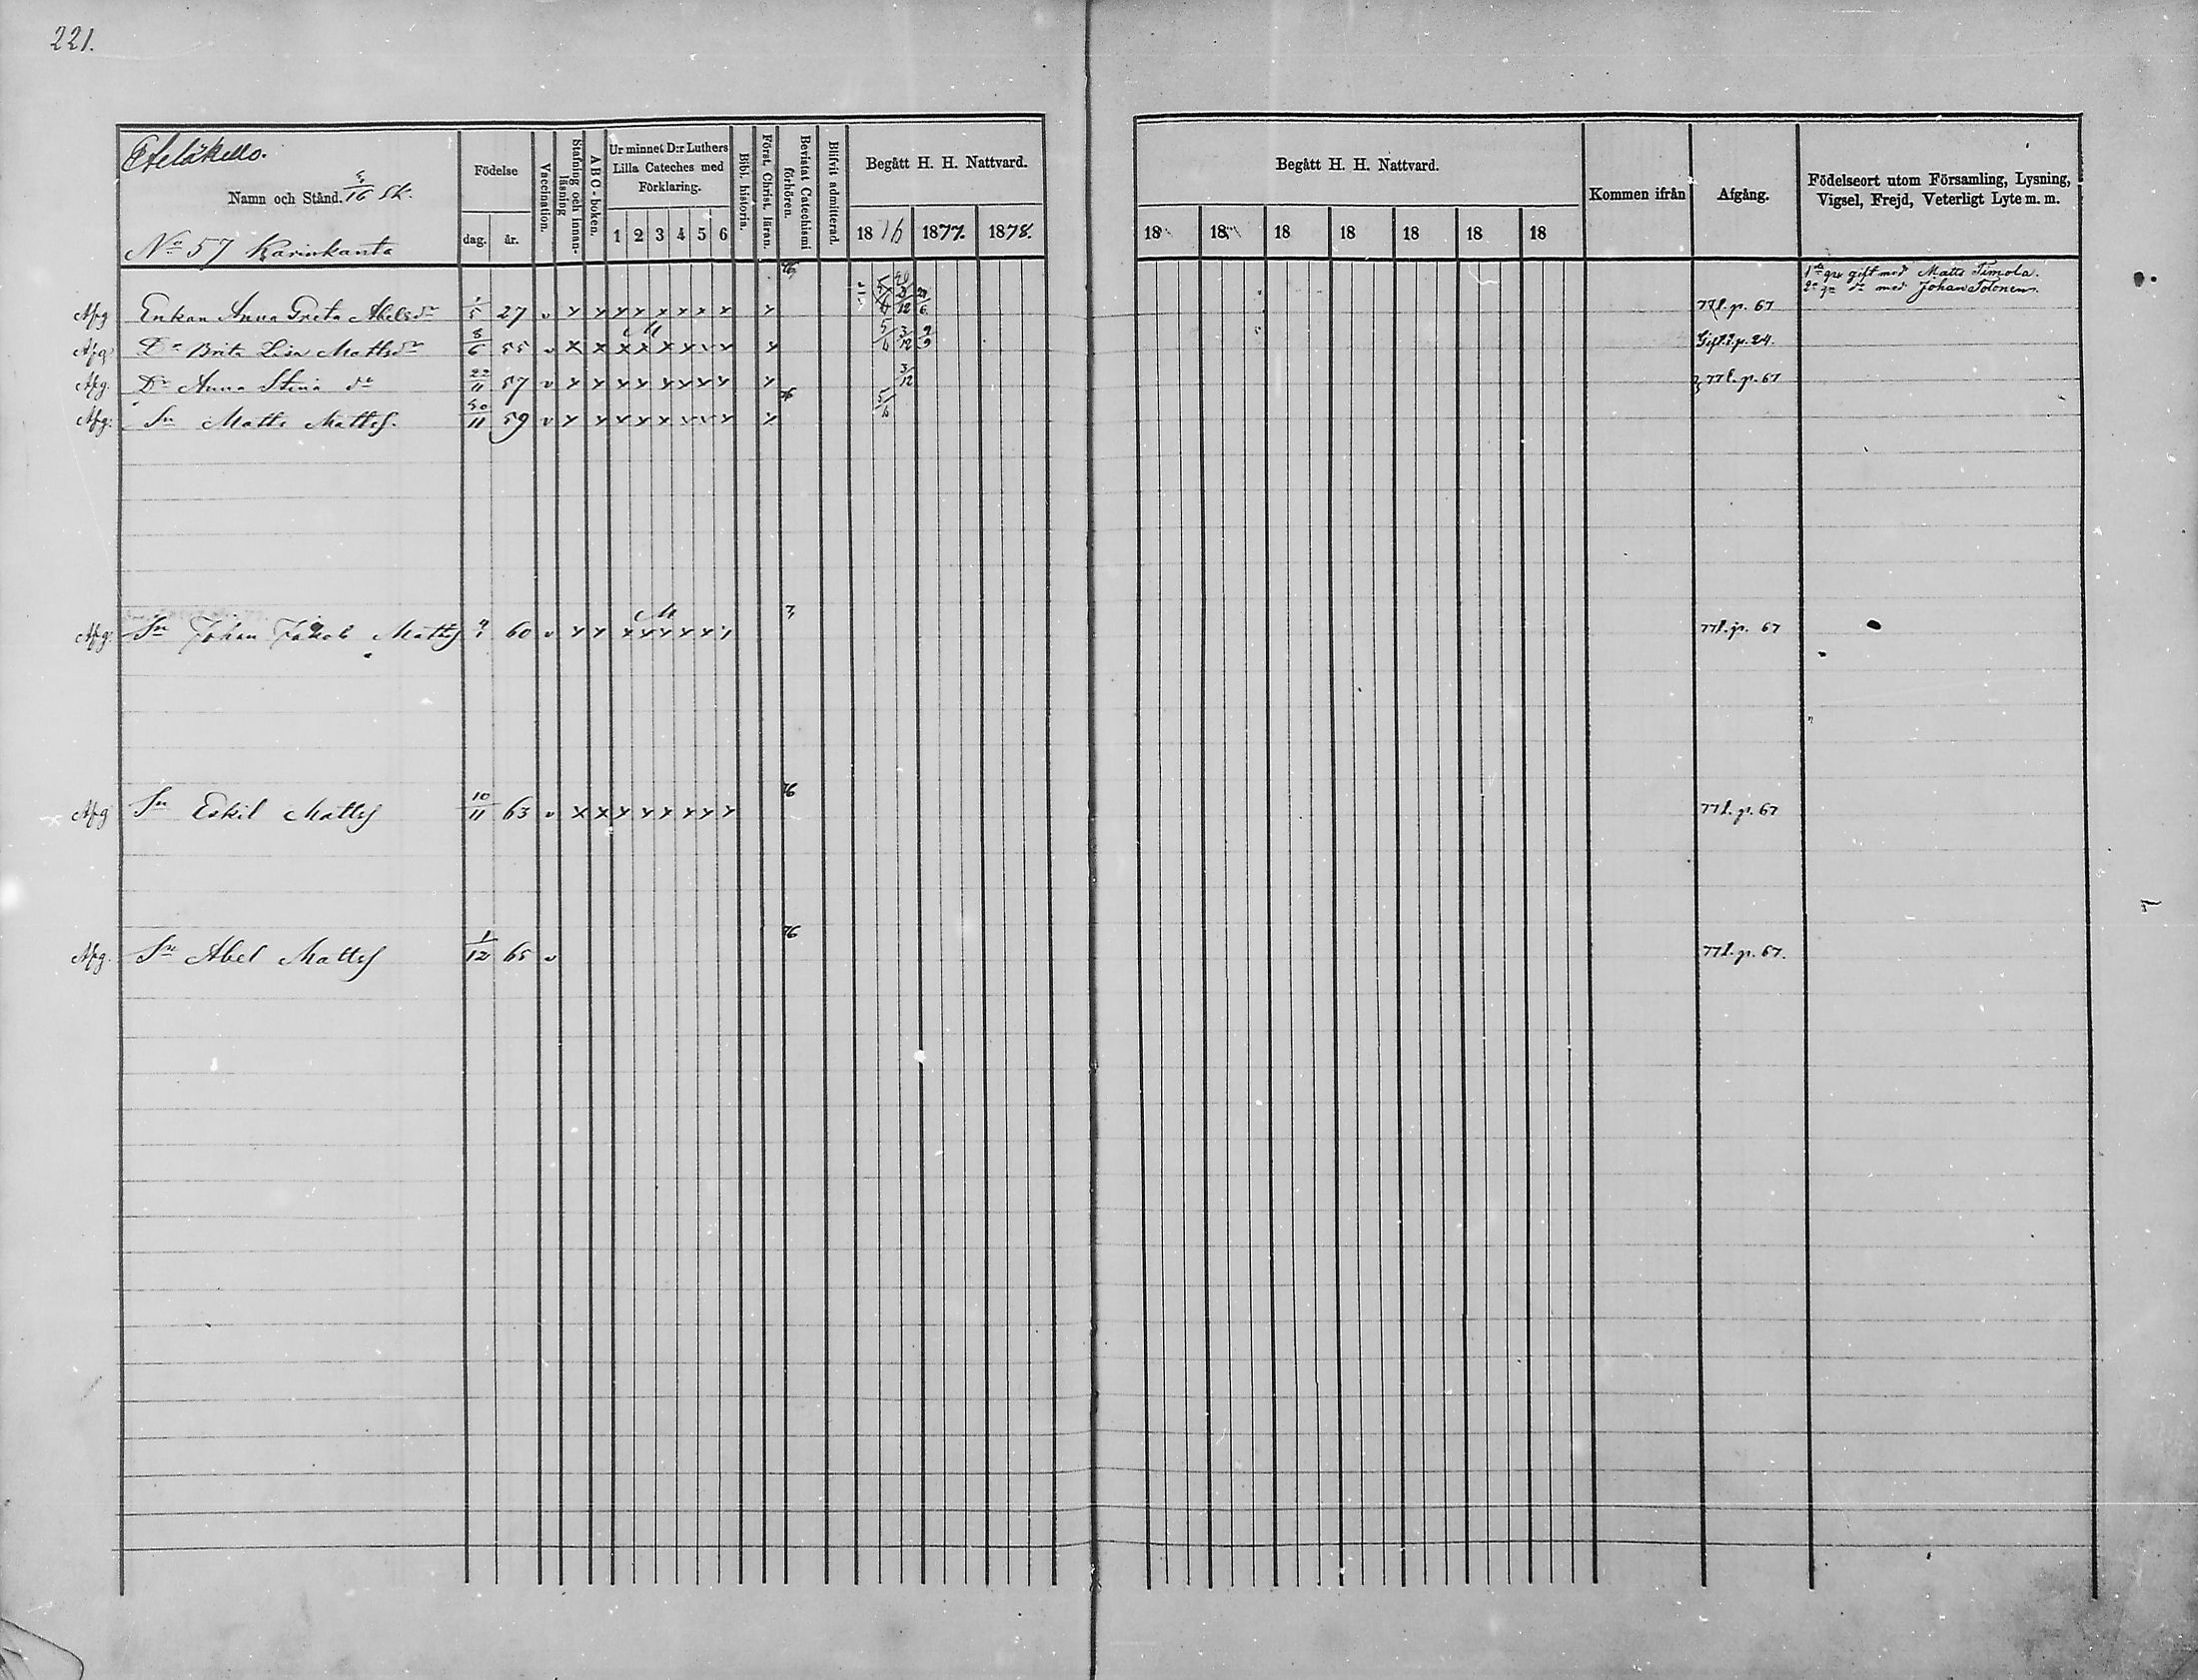 221.
Eteläkello.
Namn och Stånd. 5/16 Sk.
No 57 Karinkanta
Födelse
dag. år.
Vaccination.
Stafning och innan-läsning
ABC-boken.
Ur minnet D:r Luthers Lilla Cateches med Förklaring.
1 2 3 4 5 6
Bibl. historia.
Först. Christ. läran.
Bevistat Catechismi förhören.
Blifvit admitterad.
Begått H. H. Nattvard.
18 76 1877. 1878.
Begått H. H. Nattvard.
18 18 18 18 18 18 18
Kommen ifrån
Afgång.
Födelseort utom Församling, Lysning, Vigsel, Frejd, Veterligt Lyte m. m.
1de gen gift med Matts Timola.
2a gn do med Johan Tolonen.
Afg Enkan Anna Greta Abelsdr 1/5 27 v x x x x x x x x x 77 l. p. 67
Afg. Dr Brita Lisa Mattsdr 8/6 55 v x x x x x x v x x 5/6 3/12 9/9 Gift. l. p. 24.
Afg. Dr Anna Stina dr 22/11 57 v x x x x x x x x x 3/12 77 l. p. 67
Afg. Sn Matts Mattss. 30/11 59 v x x x x x v v x x 5/6
Afg. Sn Johan Jakob Mattss 60 v x x x x x x x x 77 l. p. 67
Afg Sn Eskil Mattss 10/11 63 v x x x x x x x x 76 77 l. p. 67
Afg. Sn Abel Mattss 1/12 65 v 76 77 l. p. 67.